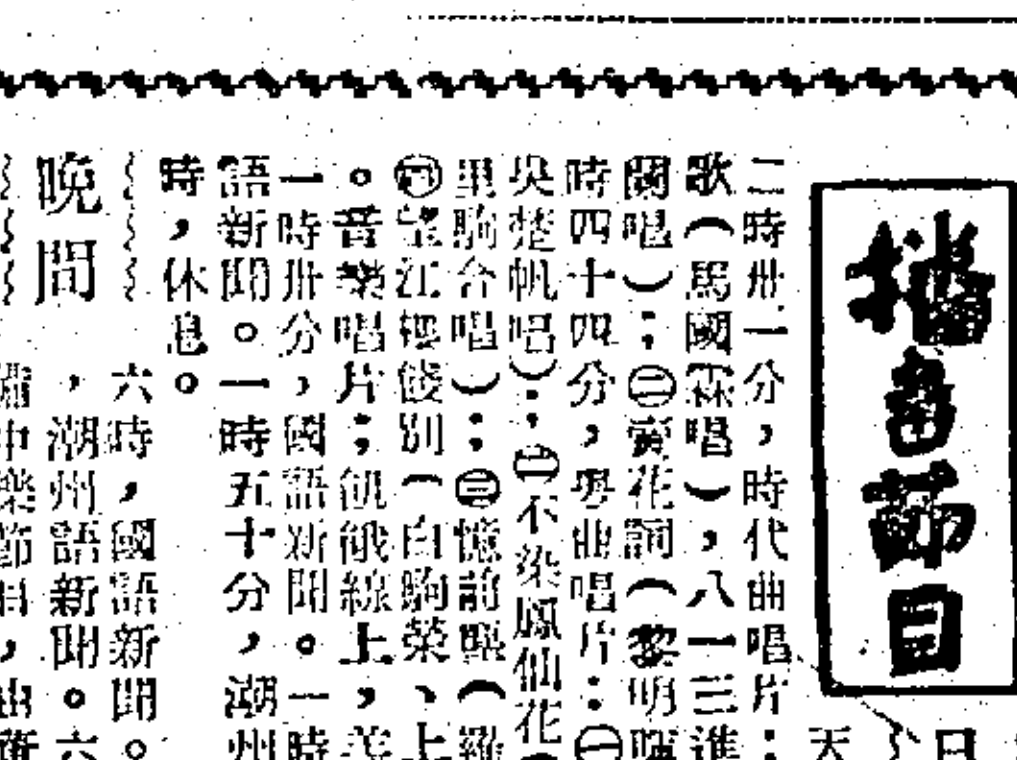 播音節目
日
天
二時卅一分，時代曲唱片：
歌（馬國霖唱），八一三進
蘭唱）；㊁賣花詞（黎明暉
時四十四分，粵曲唱片：㊀
吳楚帆唱）；㊁不染鳳仙花（
里駒合唱）；㊂憶前塵（羅
㊃望江樓餞別（白駒榮、上
。音樂唱片；飢餓線上，
一時卅分，國語新聞。一時
語新聞。一時五十分，潮州
時，休息。
晚間
六時，國語新聞。
，潮州語新聞。六
樂節目，